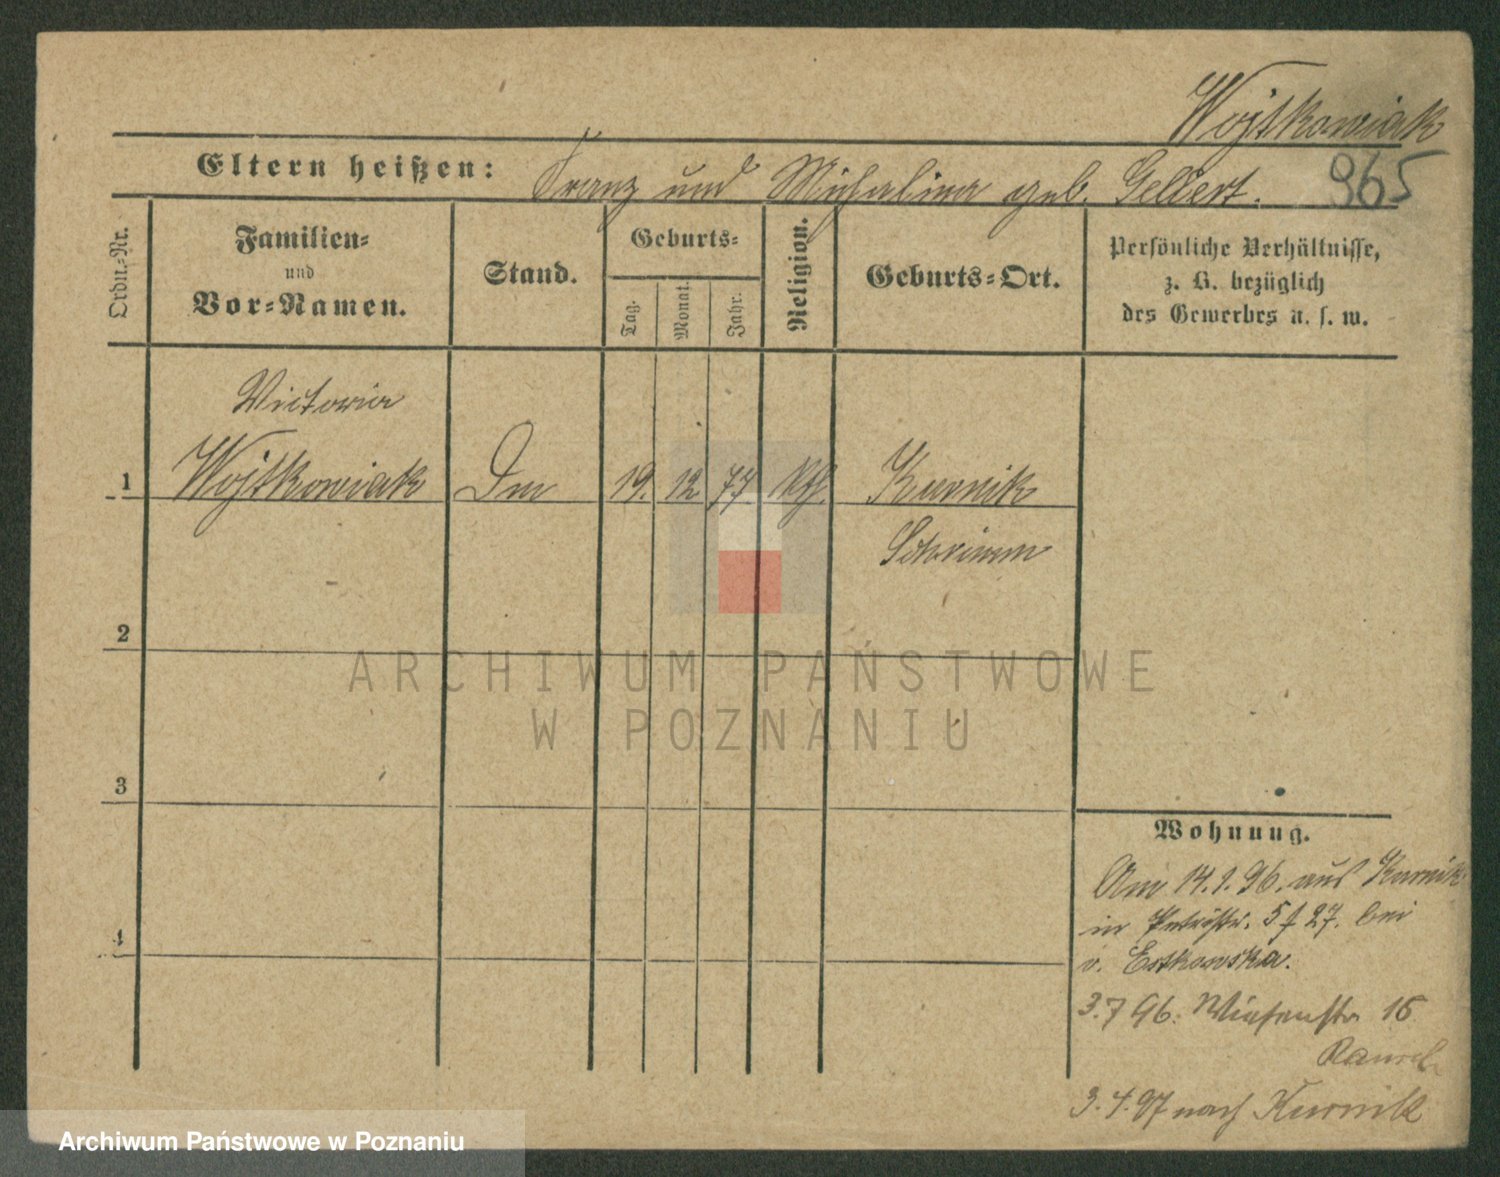 Wojtkowiak
Eltern heißen: Franz und Michalina geb. Gellert. 965
Ordn.-Nr.
Familien-
und
Vor-Namen.
Stand.
Geburts-
Tag.
Monat.
Jahr.
Religion.
Geburts-Ort.
Persönliche Verhältnisse,
z. B. bezüglich
des Gewerbes u. s. w.
Victoria
1 Wojtkowiak 19. 12 77 Kurnik
Schrimm
2
3
4
ARCHIWUM PAŃSTWOWE
W POZNANIU
Wohnung.
Am 14.1.96. aus Kurnik
in Petristr. 5 f 27. bei
v. Estkowska.
3.7 96. Wiesenstr 15
3.4.97 nach Kurnik
Archiwum Państwowe w Poznaniu